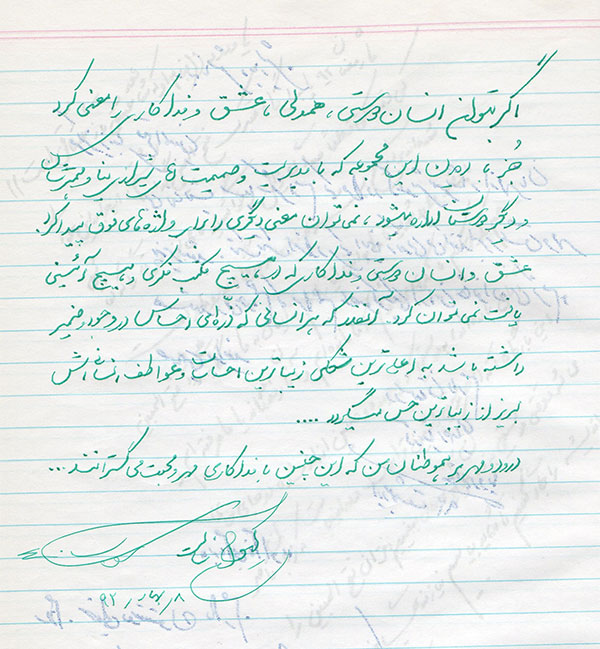 اگر بتوان انسان دوستی، همدلی، عشق و فداکاری را معنی کرد
جُز با دیدن این مجموعه که با مدیریت و صمیمیت های
و دیگر دوستان اداره میشود، نمی‌توان معنی دیگری را برای واژه های فوق پیدا کرد.
عشق و انسان دوستی و فداکاری که در هیچ مکتب فکری و هیچ آئینی
یافت نمی توان کرد. آنقدر که هر انسانی که ذره‌ای احساس در وجود و ضمیر
داشته باشد به اعلی ترین شکلی زیباترین احساسات و عواطف انسانی اش
لبریز از زیباترین حس میگردد ....
درود و مهر بر هموطنان من که این چنین با فداکاری مهر و محبت می گسترانند...
۹۲